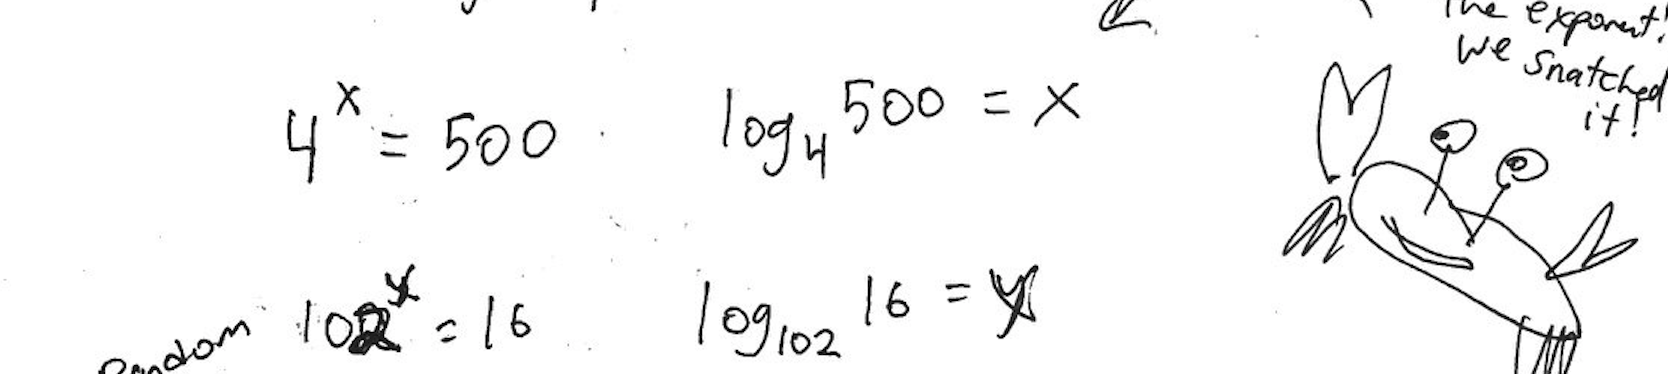 The exponent!
We snatched
it!
4^x = 500
log₄ 500 = x
Random
102^y = 16
log₁₀₂ 16 = y